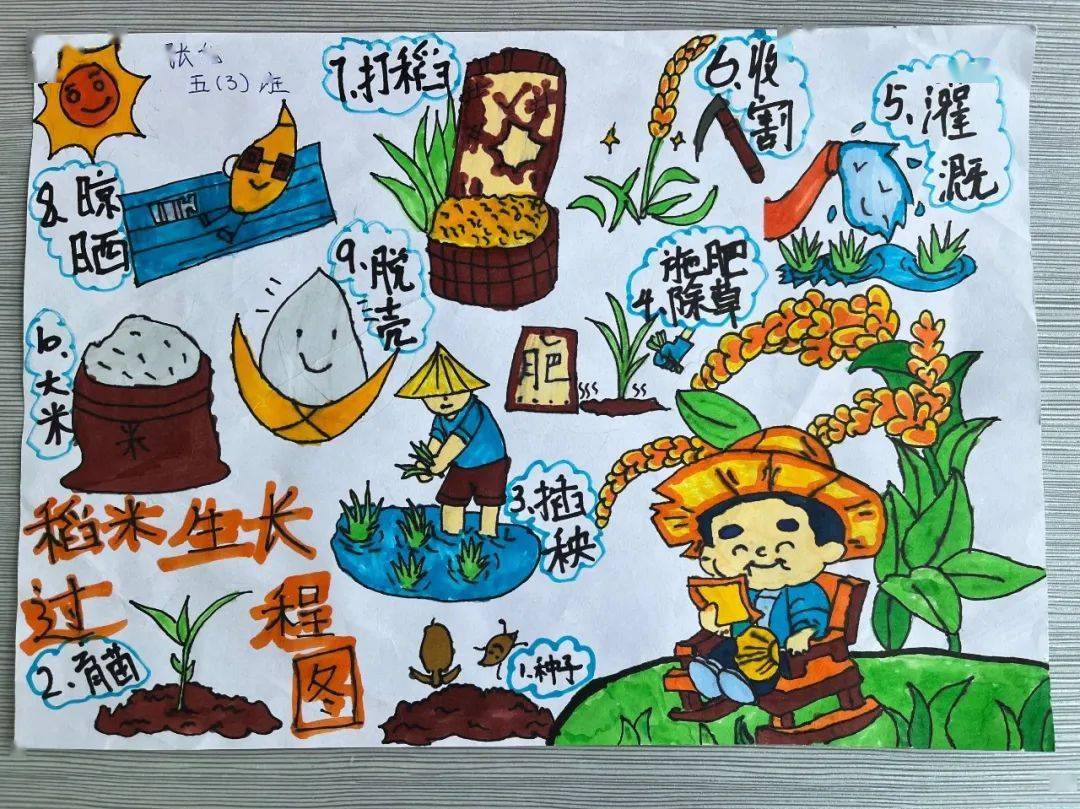 张
五(3)班
7.打稻
6.收
割
5.灌
溉
8.晾
晒
9.脱
壳
施肥
4.除草
10.大
米
米
肥
3.插
秧
稻米生长
过程
图
2.育苗
1.种子